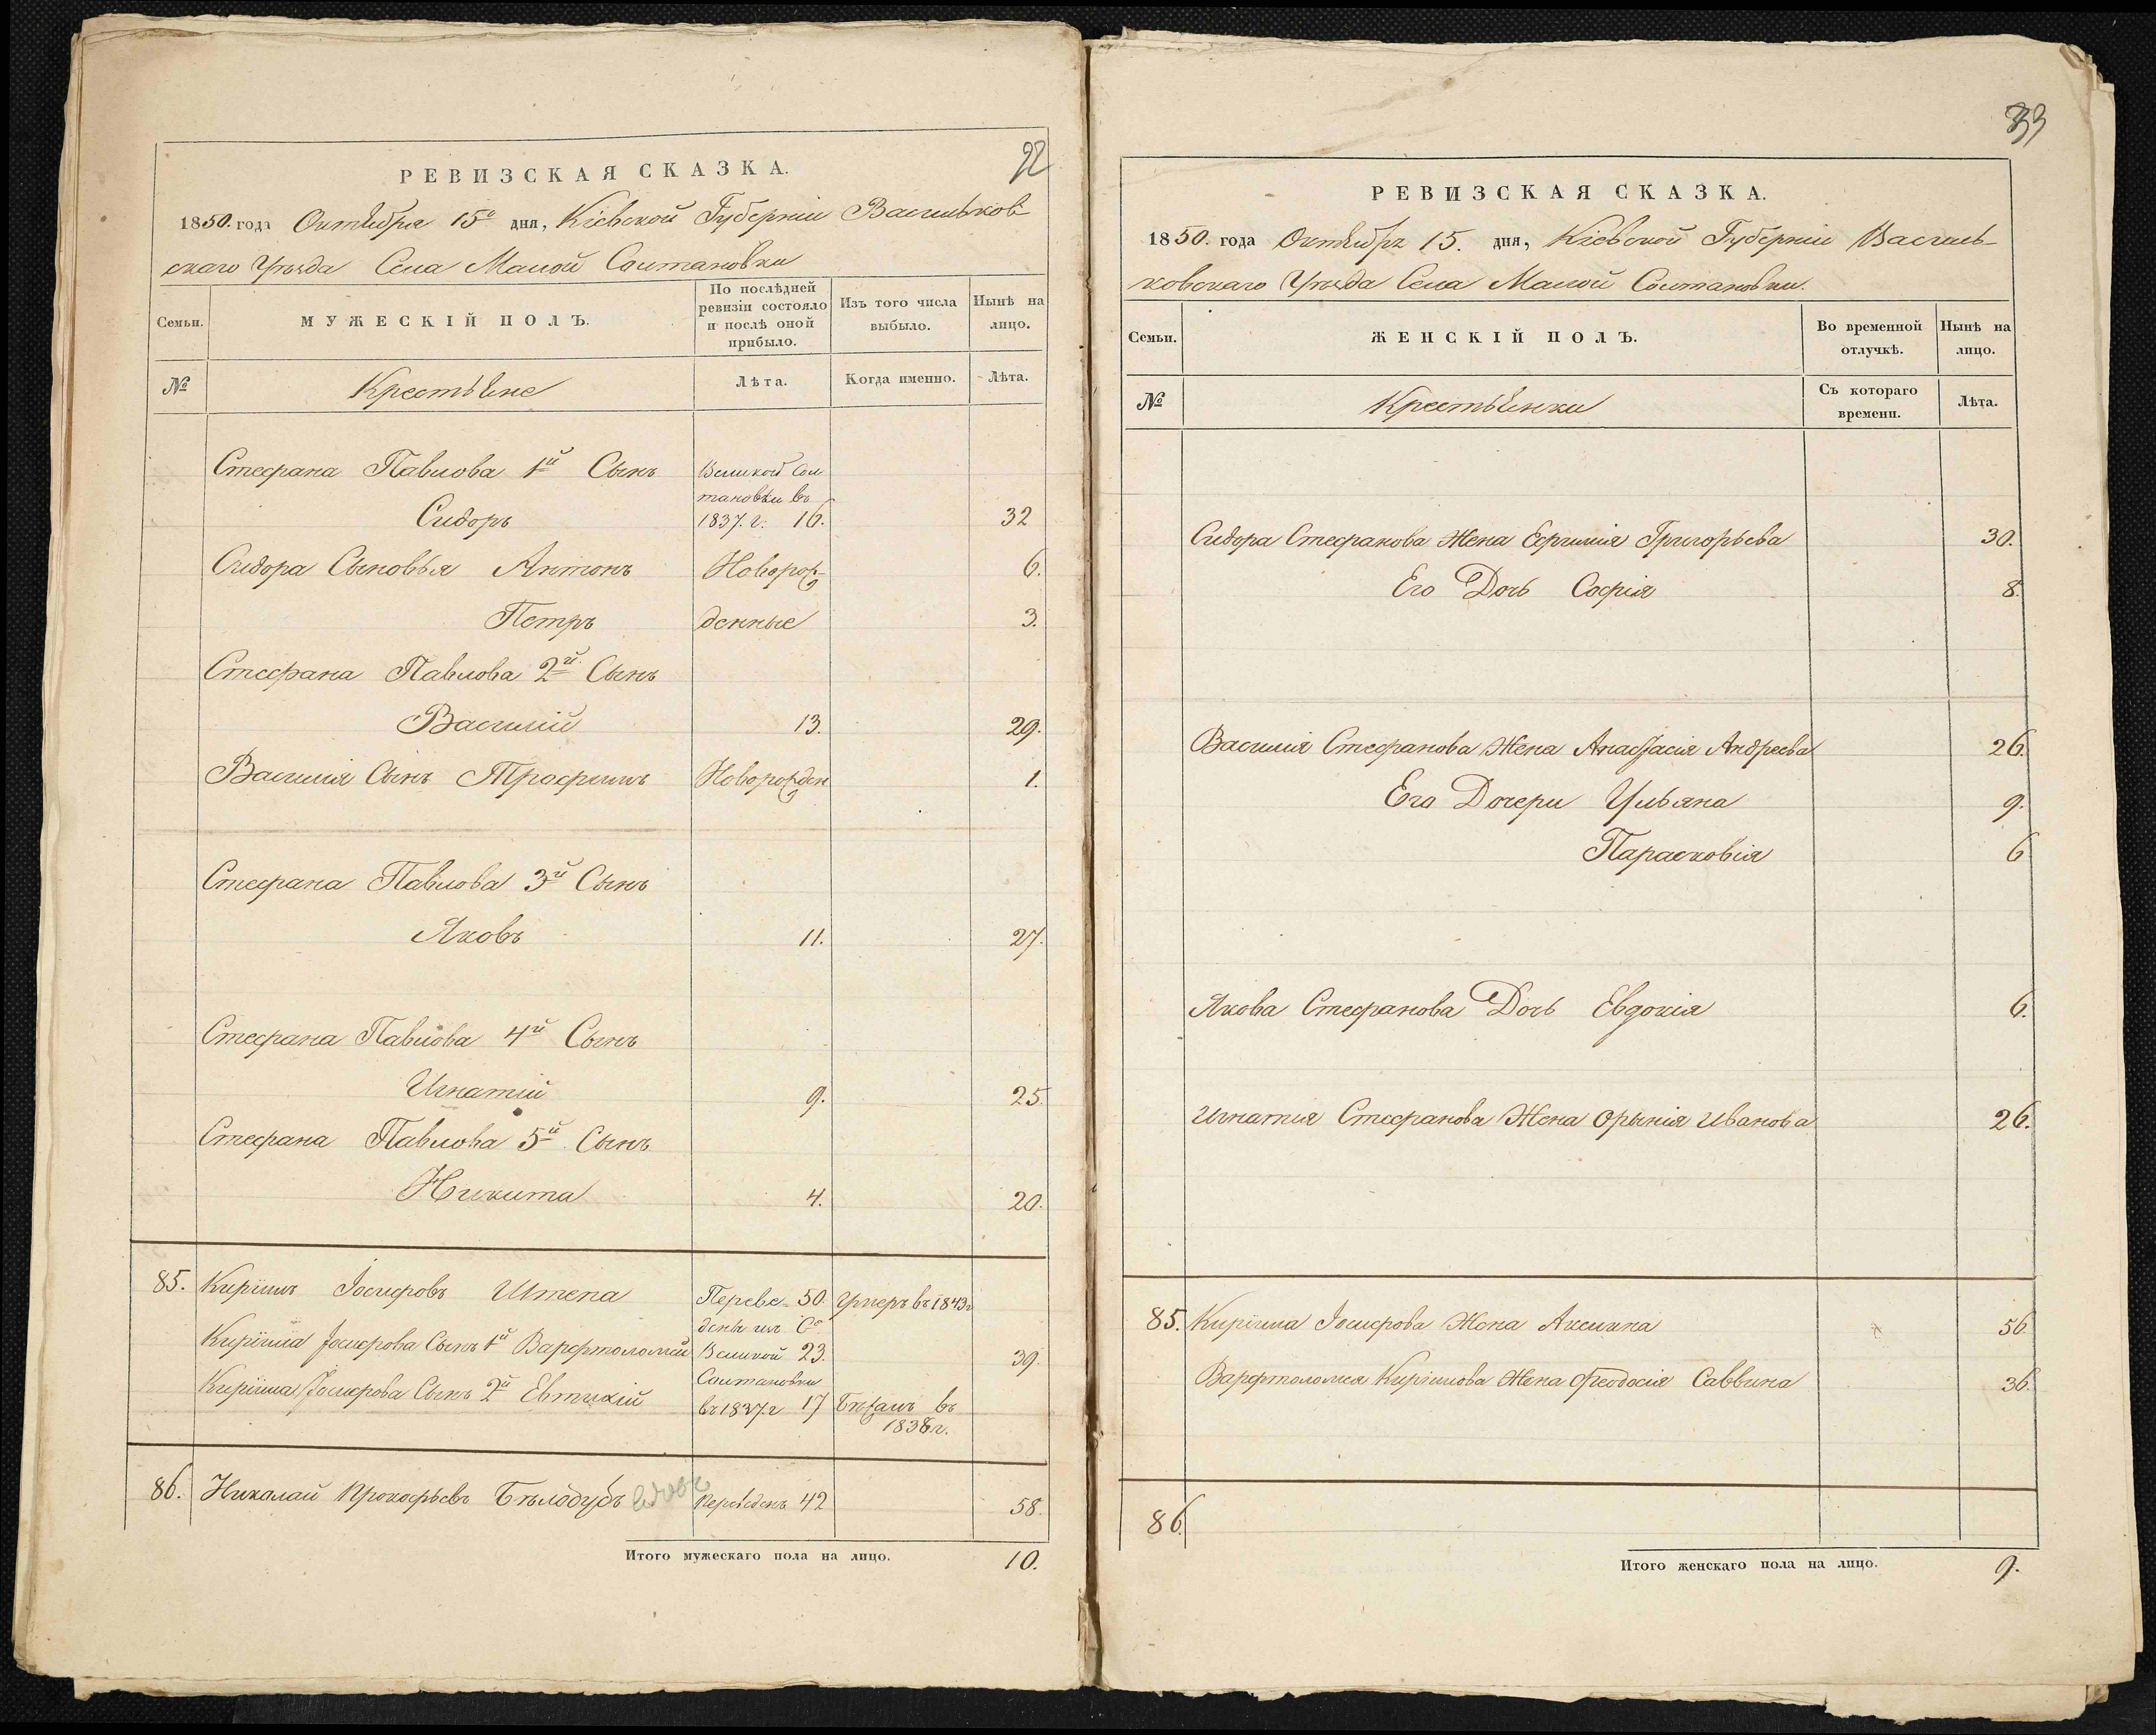 22
РЕВИЗСКАЯ СКАЗКА.
1850. года Октября 15го дня, Кіевской Губерніи Васильков-
скаго Уѣзда Села Малой Солтановки
Семьи.
МУЖЕСКІЙ ПОЛЪ.
По послѣдней ревизіи состояло и послѣ оной прибыло.
Изъ того числа выбыло.
Нынѣ на лицо.
№
Крестьяне
Лѣта.
Когда именно.
Лѣта.
Стефана Павлова 1й Сынъ Великой Сол
тановки въ
Сидоръ 1837. г. 16. 32
Сидора Сыновья Антонъ Новорож- 6.
Петръ денные 3.
Стефана Павлова 2й Сынъ
Василий 13. 29.
Василія Сынъ Трофимъ Новорожден 1.
Стефана Павлова 3й Сынъ
Яковъ 11. 27.
Стефана Павлова 4й Сынъ
Игнатій 9. 25.
Стефана Павлова 5й Сынъ
Никита 4. 20.
85. Кирилъ Іосифовъ Штепа Переве- 50. Умеръ въ 1843г
денъ изъ Со
Кирила Іосифова Сынъ 1й Варфтоломей Великой 23. 39.
Солтановки
Кирила Іосифова Сынъ 2й Евтихій въ 1837г 17 Бѣжалъ въ
1838г.
86. Николай Прокофьевъ Бѣлодубъ вдовъ Переведенъ 42 58.
Итого мужескаго пола на лицо. 10.
33
РЕВИЗСКАЯ СКАЗКА.
1850. года Октября 15. дня, Кіевской Губерніи Василь-
ковскаго Уѣзда Села Малой Солтановки.
Семьи.
ЖЕНСКІЙ ПОЛЪ.
Во временной отлучкѣ.
Нынѣ на лицо.
№
Крестьянки
Съ котораго времени.
Лѣта.
Сидора Стефанова Жена Ефимія Григорьева 30.
Его Дочь Софія 8.
Василія Стефанова Жена Анастасія Андреева 26.
Его Дочери Ульяна 9.
Парасковія 6
Якова Стефанова Дочь Евдокія 6.
Игнатія Стефанова Жена Орынія Иванова 26.
85. Кирила Іосифова Жена Аксинна 56
Варфтоломея Кирилова Жена Феодосія Саввина 36.
86.
Итого женскаго пола на лицо. 9.